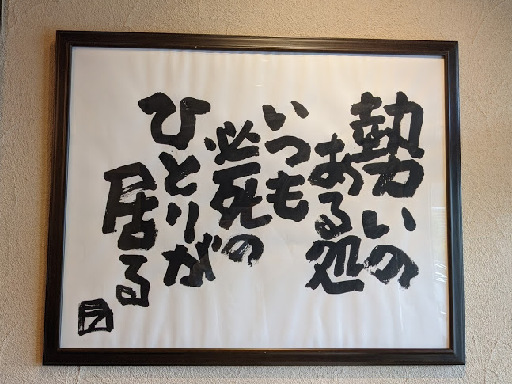 勢いの
ある処
いつも
必死の
ひとりが
居る